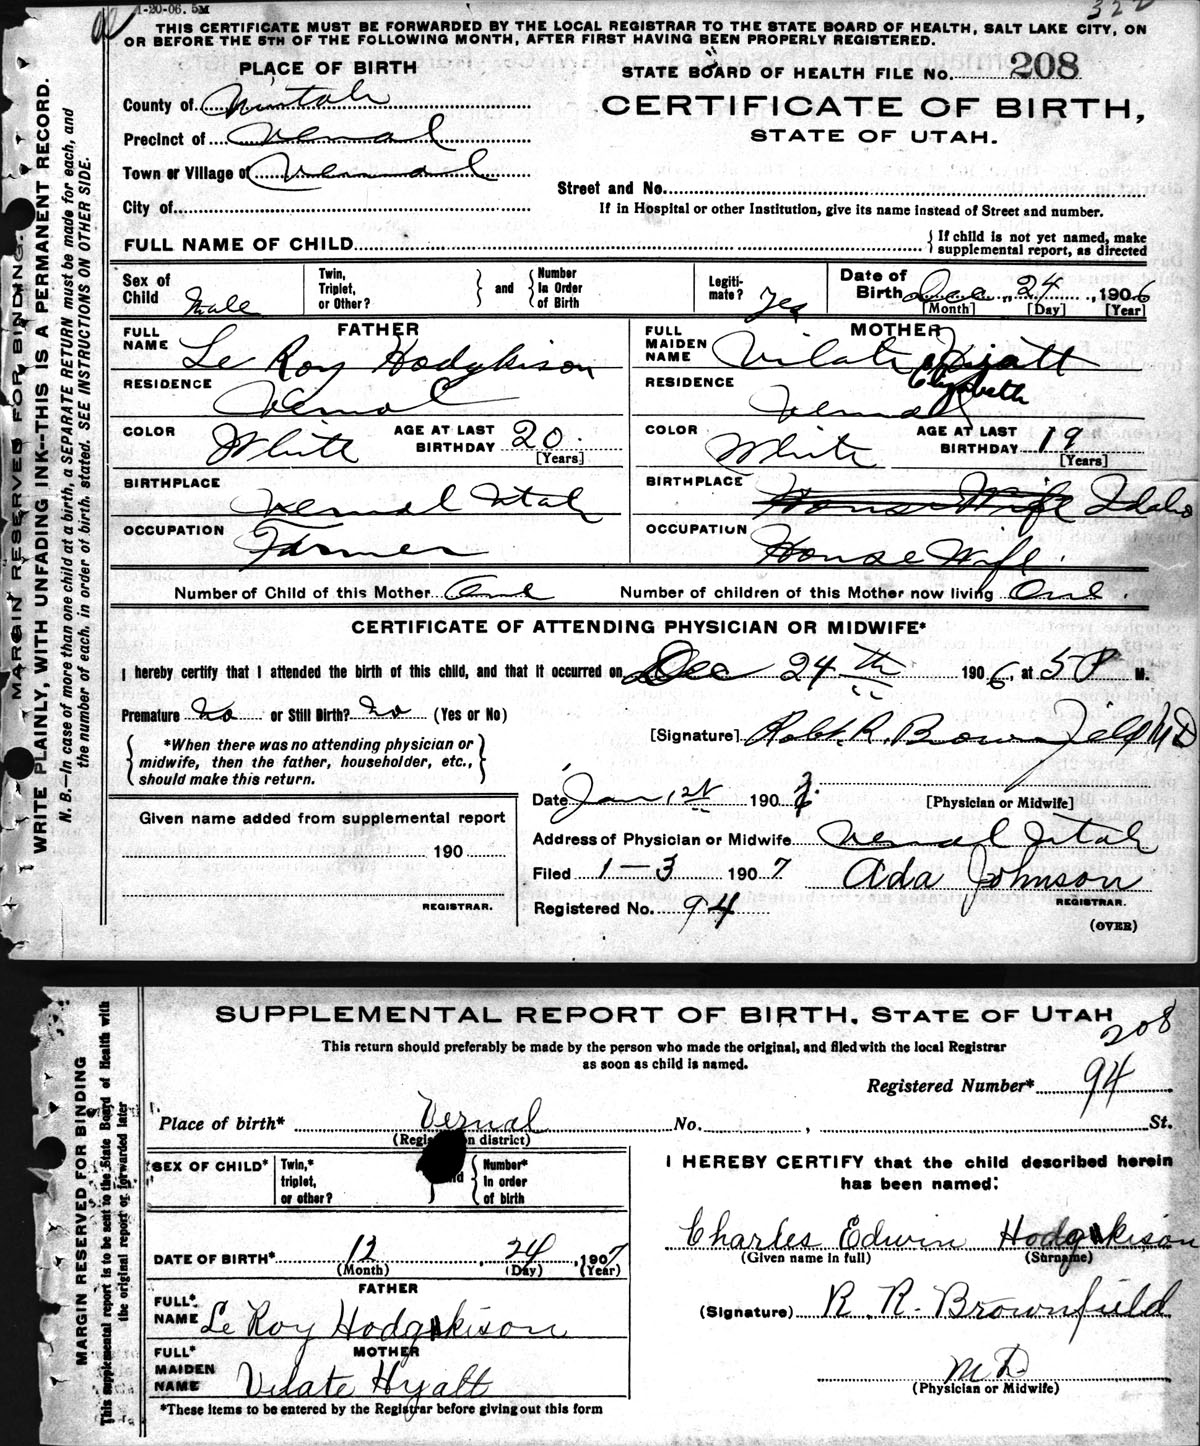 1-20-06. 5M
322
THIS CERTIFICATE MUST BE FORWARDED BY THE LOCAL REGISTRAR TO THE STATE BOARD OF HEALTH, SALT LAKE CITY, ON
OR BEFORE THE 5TH OF THE FOLLOWING MONTH, AFTER FIRST HAVING BEEN PROPERLY REGISTERED.
MARGIN RESERVED FOR BINDING.
WRITE PLAINLY, WITH UNFADING INK--THIS IS A PERMANENT RECORD.
N. B.—In case of more than one child at a birth, a SEPARATE RETURN must be made for each, and
the number of each, in order of birth, stated. SEE INSTRUCTIONS ON OTHER SIDE.
PLACE OF BIRTH
County of Uintah
Precinct of Vernal
Town or Village of Vernal
City of
STATE BOARD OF HEALTH FILE No. 208
CERTIFICATE OF BIRTH,
STATE OF UTAH.
Street and No.
If in Hospital or other Institution, give its name instead of Street and number.
FULL NAME OF CHILD { If child is not yet named, make
supplemental report, as directed
Sex of Child Male
Twin, Triplet, or Other? } and { Number In Order of Birth
Legiti-mate? Yes
Date of Birth Dec 24, 1906
[Month] [Day] [Year]
FATHER
FULL NAME Le Roy Hodgkison
RESIDENCE Vernal
COLOR White AGE AT LAST BIRTHDAY 20 [Years]
BIRTHPLACE Vernal Utah
OCCUPATION Farmer
MOTHER
FULL MAIDEN NAME Vilate Hyatt
Elizabeth
RESIDENCE Vernal
COLOR White AGE AT LAST BIRTHDAY 19 [Years]
BIRTHPLACE House Wife Idaho
OCCUPATION House Wife.
Number of Child of this Mother One Number of children of this Mother now living One.
CERTIFICATE OF ATTENDING PHYSICIAN OR MIDWIFE*
I hereby certify that I attended the birth of this child, and that it occurred on Dec 24th 1906, at 5 P M.
Premature No or Still Birth? No (Yes or No)
{ *When there was no attending physician or
midwife, then the father, householder, etc.,
should make this return. }
[Signature] Robt. R. Brownfield MD
[Physician or Midwife]
Date Jan 1st 1907
Given name added from supplemental report
190
REGISTRAR.
Address of Physician or Midwife Vernal Utah
Filed 1-3 1907 Ada Johnson
REGISTRAR.
Registered No. 94
(OVER)
MARGIN RESERVED FOR BINDING
This supplemental report is to be sent to the State Board of Health with
the original report or forwarded later
SUPPLEMENTAL REPORT OF BIRTH, STATE OF UTAH
208
This return should preferably be made by the person who made the original, and filed with the local Registrar
as soon as child is named.
Registered Number* 94
Place of birth* Vernal No. , St.
(Registration district)
SEX OF CHILD* Twin,* triplet, or other? } and { Number* In order of birth
DATE OF BIRTH* 12 24, 1907
(Month) (Day) (Year)
FATHER
FULL* NAME Le Roy Hodgkison
MOTHER
FULL* MAIDEN NAME Vilate Hyatt
*These items to be entered by the Registrar before giving out this form
I HEREBY CERTIFY that the child described herein
has been named:
Charles Edwin Hodgkison
(Given name in full) (Surname)
(Signature) R. R. Brownfield
M D.
(Physician or Midwife)